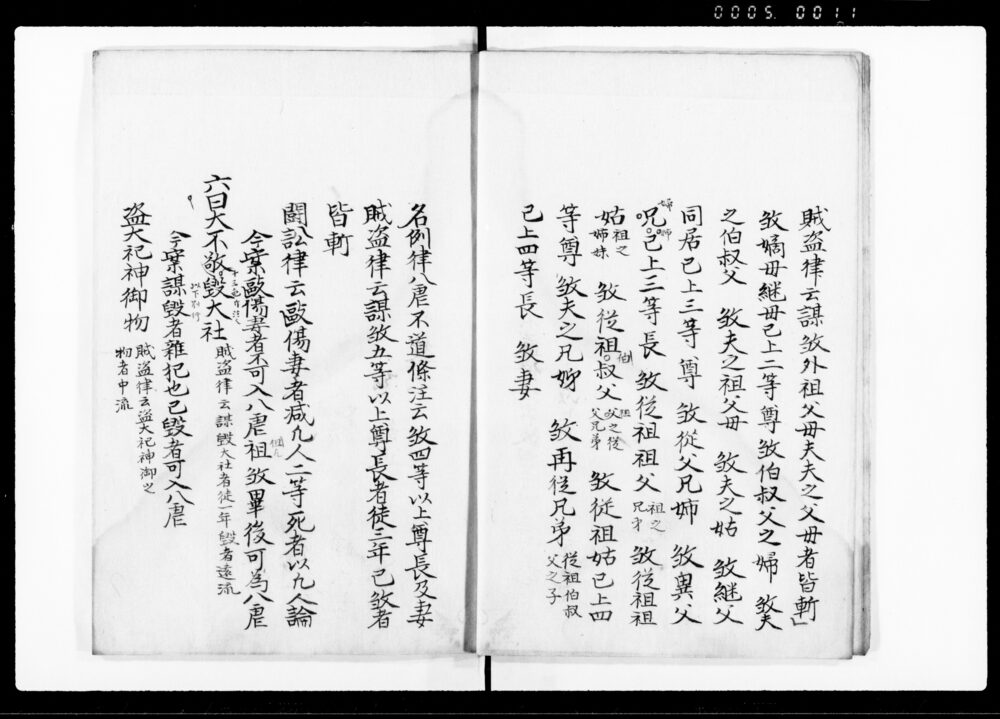 0005 0011
賊盗律云謀煞外祖父母夫夫之父母者皆斬
煞嫡母継母已上二等尊煞伯叔父之婦 煞夫
之伯叔父 煞夫之祖父母 煞夫之姑 煞継父
同居已上三等尊 煞従父兄姉 煞異父
兄姉已上三等長 煞従祖祖父 祖之兄弟 煞従祖祖
姑 祖之姉妹 煞従祖伯叔父 父之従父兄弟 煞従祖姑已上四
等尊 煞夫之兄姉 煞再従兄弟 従祖伯叔父之子
已上四等長 煞妻
名例律八虐不道條注云煞四等以上尊長及妻
賊盗律云謀煞五等以上尊長者徒三年已煞者
皆斬
闘訟律云歐傷妻者减凡人二等死者以凡人論
今案歐傷妻者不可入八虐祖煞畢後可為八虐
六曰大不敬毀大社 賊盗律云謀毀大社者徒一年毀者遠流
今案謀毀者雜犯也已毀者可入八虐
盗大祀神御物 賊盗律云盗大祀神御之物者中流